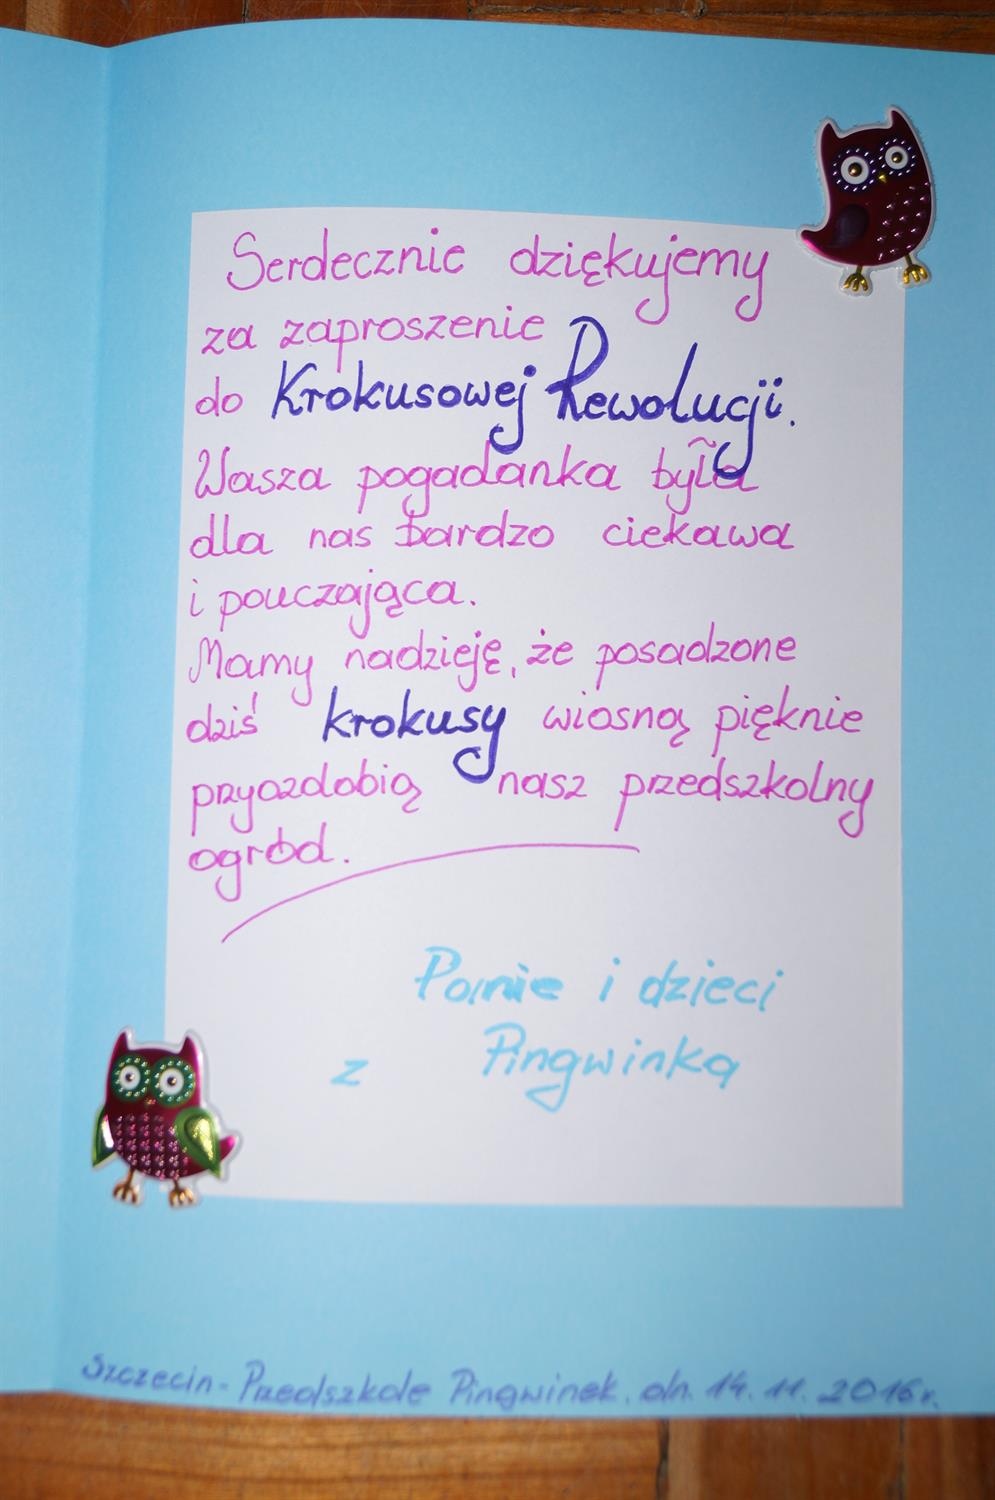 Serdecznie dziękujemy
za zaproszenie
do Krokusowej Rewolucji.
Wasza pogadanka była
dla nas bardzo ciekawa
i pouczająca.
Mamy nadzieję, że posadzone
dziś krokusy wiosną pięknie
przyozdobią nasz przedszkolny
ogród.
Panie i dzieci
z Pingwinka
Szczecin - Przedszkole Pingwinek. dn. 14. 11. 2016r.